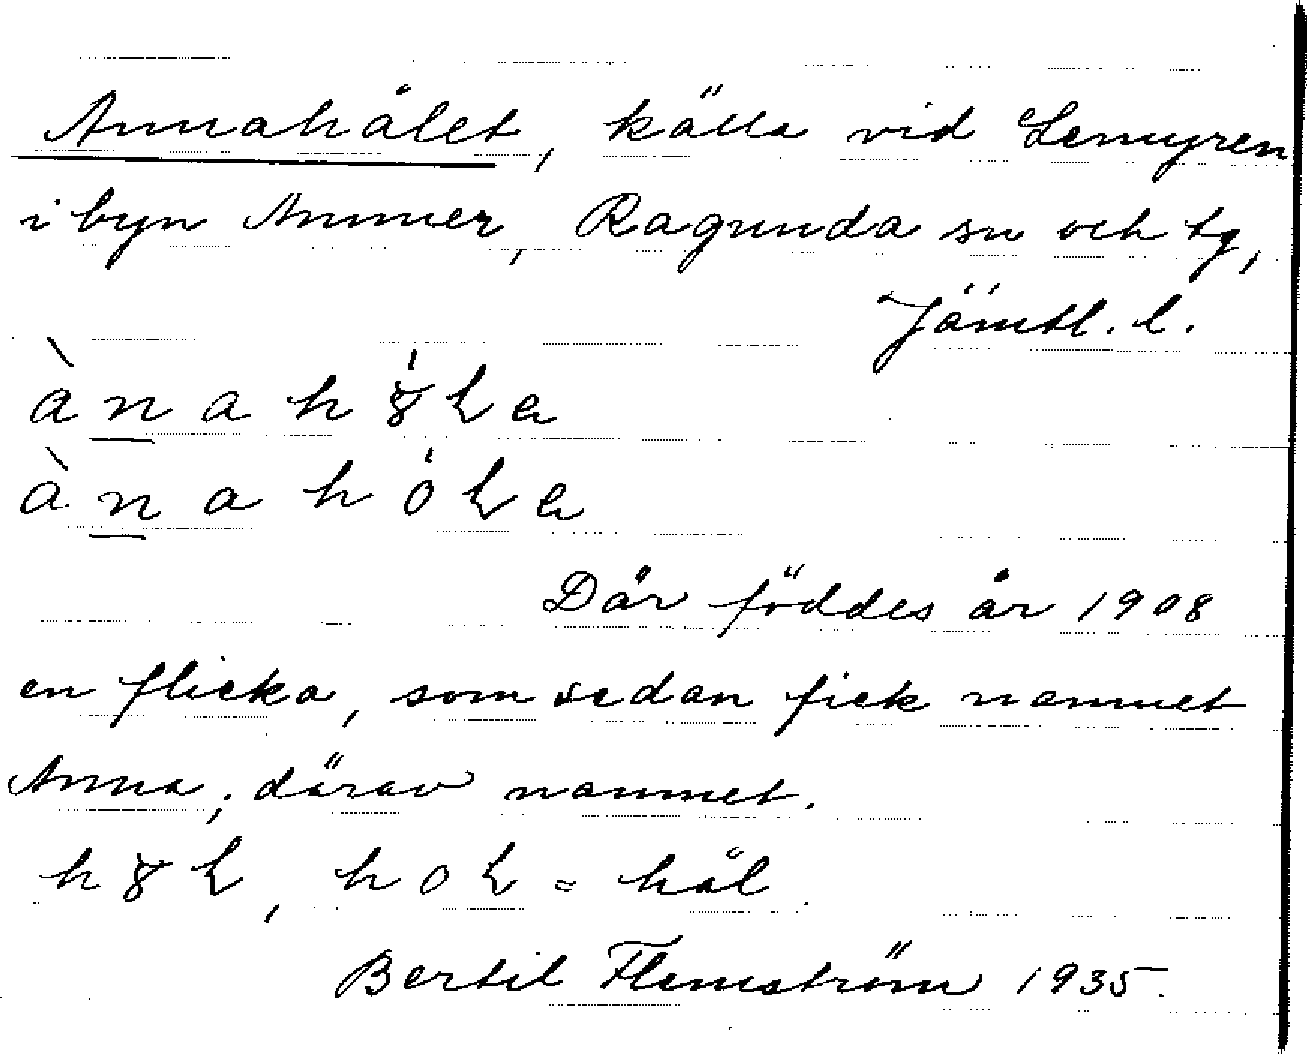 Annahålet, källa vid Lemyren
i byn Ammer, Ragunda sn och tg,
Jämtl. l.
ànahȣ́ɫa
ànahóɫa
Där föddes år 1908
en flicka, som sedan fick namnet
Anna; därav namnet.
hȣɫ, hoɫ = hål
Bertil Flemström 1935.